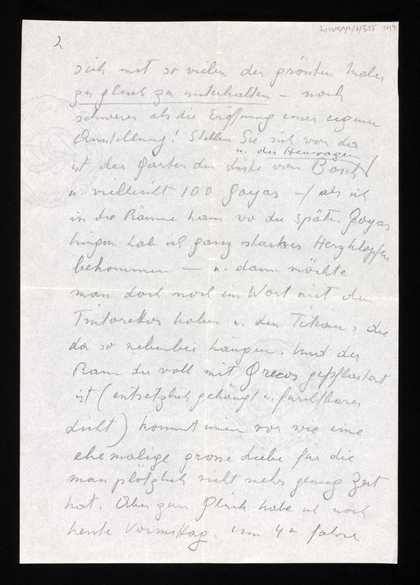 2
sich mit so vielen der grössten Maler
zu gleich zu unterhalten – noch
schwerer als die Eröffnung einer eigenen
Ausstellung! Stellen Sie sich vor da
u. der Heuwagen
ist der Garten der Lüste von Bosch
u. vielleicht 100 Goyas – als ich
in die Räume kam wo die späten Goyas
hingen hab ich ganz starkes Herzklopfen
bekommen – u. dann möchte
man doch noch ein Wort mit den
Tintorettos haben u. den Tizians, die
da so nebenbei hangen. Und der
Raum der voll mit Grecos gepflastert
ist (entsetzlich gehängt u. furchtbares
Licht) kommt einem vor wie eine
ehemalige grosse Liebe für die
man plötzlich nicht mehr genug Zeit
hat. Aber zum Glück habe ich noch
heute Vormittag. Um 4 fahre